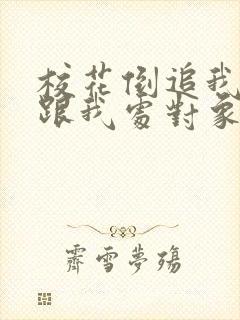 校花倒追我
跟我處對象
霽雪夢殤